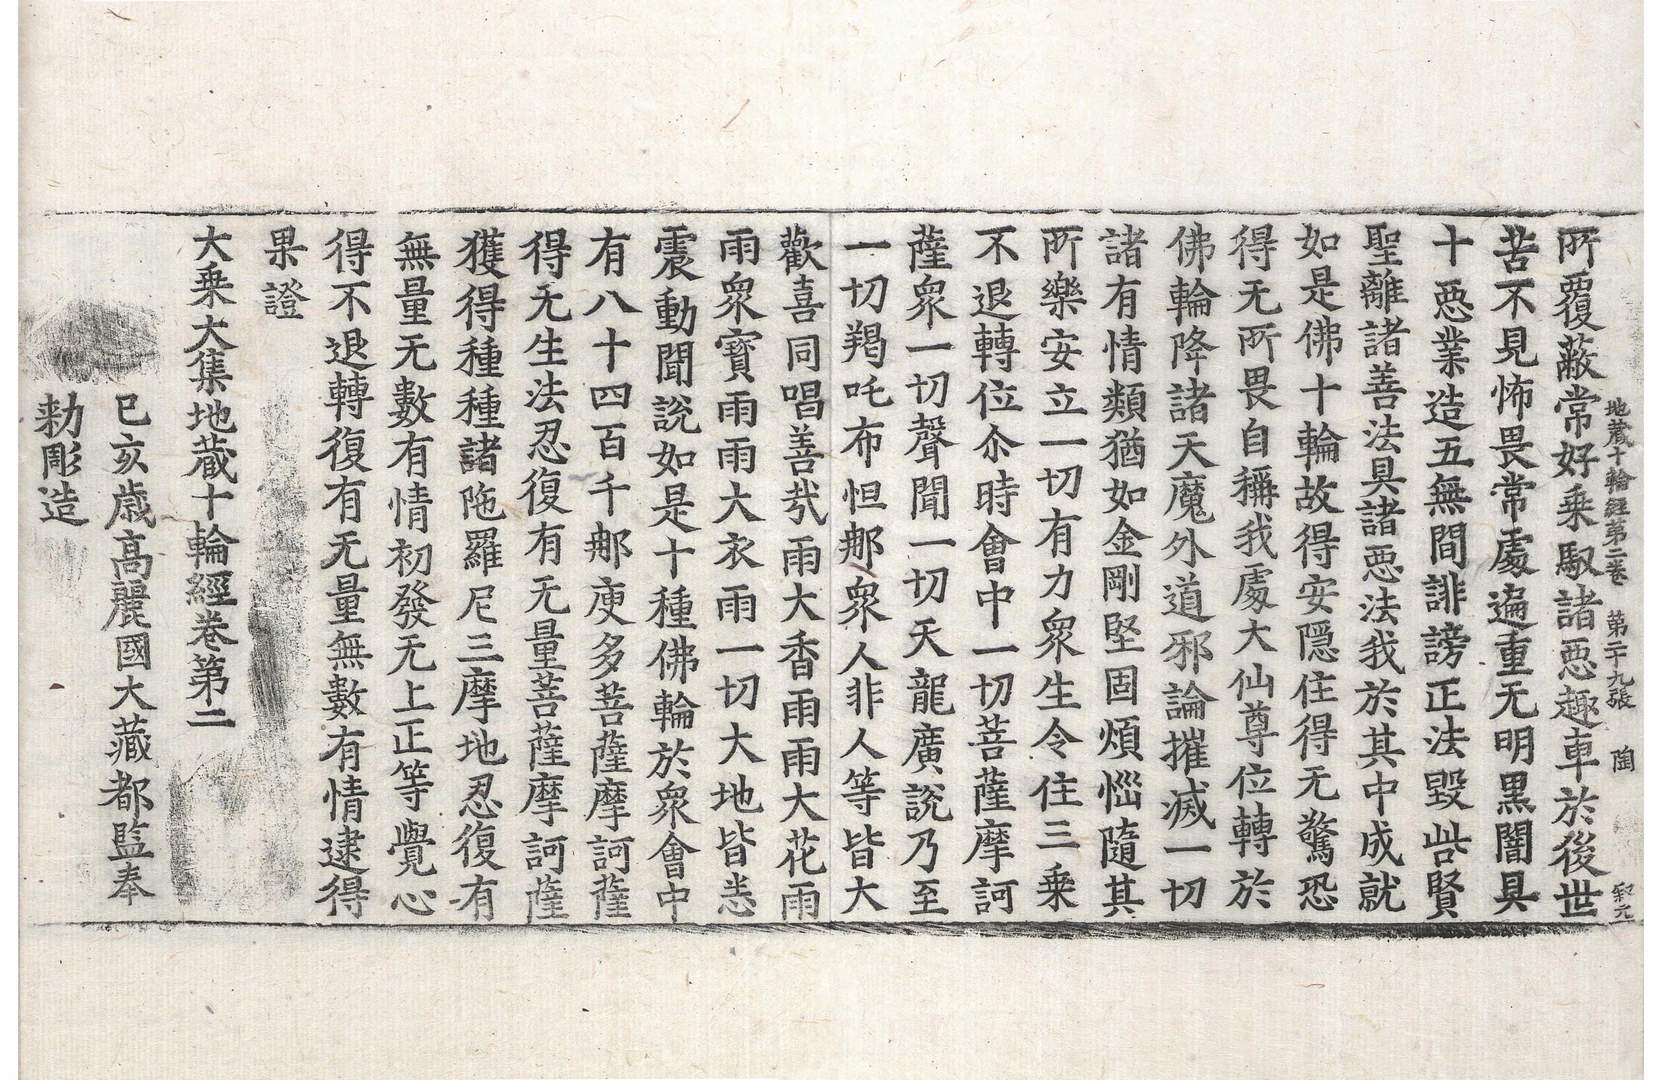 地藏十輪經第二卷 第二十九張 陶 㝎元
所覆蔽常好乘馭諸惡趣車於後世
苦不見怖畏常處遍重无明黑闇具
十惡業造五無間誹謗正法毀呰賢
聖離諸善法具諸惡法我於其中成就
如是佛十輪故得安隱住得无驚恐
得无所畏自稱我處大仙尊位轉於
佛輪降諸天魔外道邪論摧滅一切
諸有情類猶如金剛堅固煩惱隨其
所樂安立一切有力衆生令住三乘
不退轉位尒時會中一切菩薩摩訶
薩衆一切聲聞一切天龍廣說乃至
一切羯吒布怛那衆人非人等皆大
歡喜同唱善㢤雨大香雨雨大花雨
雨衆寶雨雨大衣雨一切大地皆悉
震動聞說如是十種佛輪於衆會中
有八十四百千那庾多菩薩摩訶薩
得无生法忍復有无量菩薩摩訶薩
獲得種種諸陁羅尼三摩地忍復有
無量无數有情初發无上正等覺心
得不退轉復有无量無數有情逮得
果證
大乘大集地藏十輪經卷第二
己亥歲高麗國大藏都監奉
勅彫造